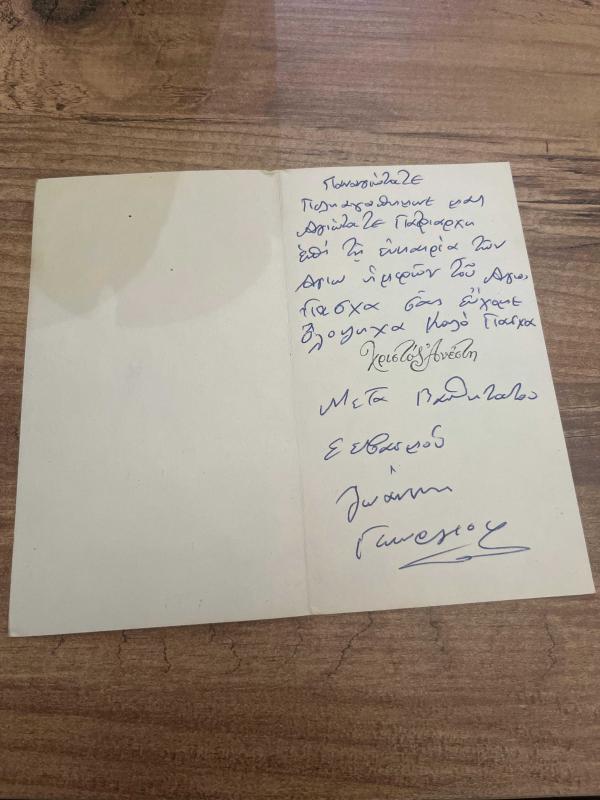 Παναγιώτατε
Πολυαγαπημενε μας
Αγιώτατε Πατριαρχη
επί τῇ εὐκαιρία των
Αγιων ἡμερῶν τοῦ Αγιου
Πασχα σας εὔχομε
ὁλοψηχα Καλό Πασχα
Χριστός Ἀνέστη
Μετα Βαθητατου
Σεβασμού
Ἰωάννη
Γεωργιος